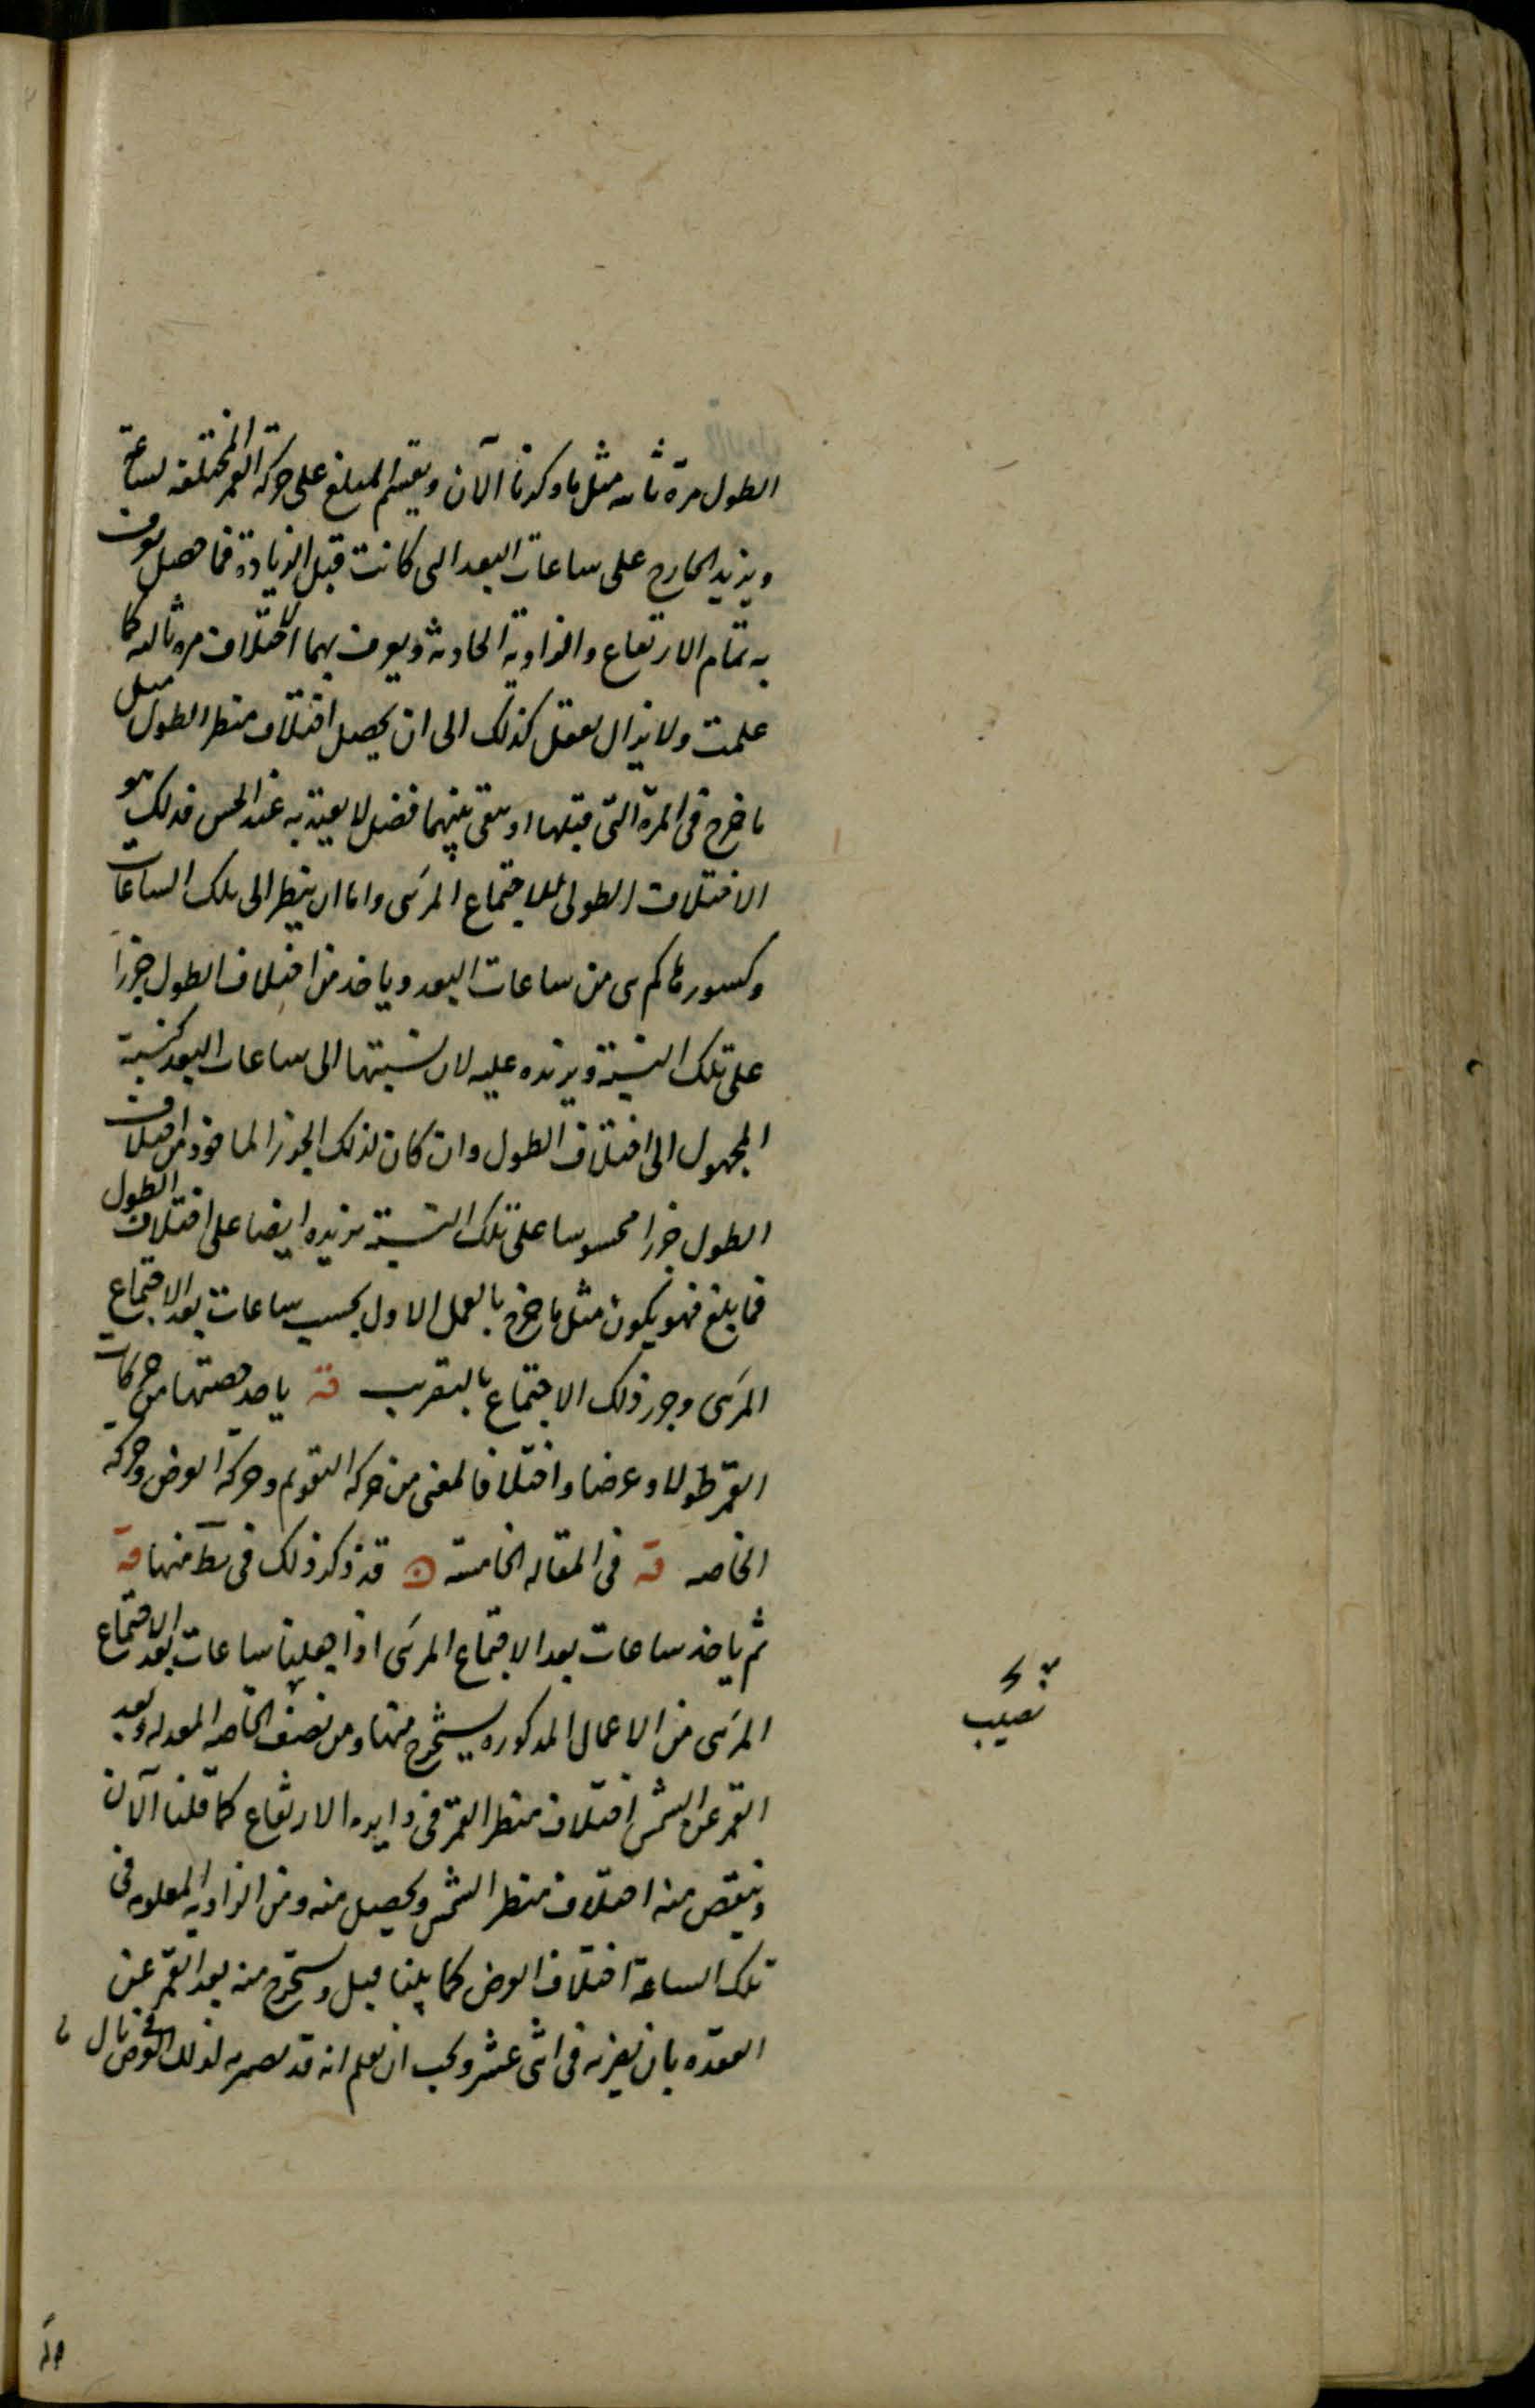 الطول مرة ثانيه مثل ما ذكرنا الآن ويقسم المبلغ على حركة القمر المختلفه لساعة
ويزيد الخارج على ساعات البعد التى كانت قبل الزيادة فما حصل يعرف
به تمام الارتفاع والزاوية الحادثة ويعرف بهما الاختلاف مره ثالثه كما
علمت ولا يزال يفعل كذلك الى ان يحصل اختلاف منظر الطول مثل
ما خرج فى المرة التى قبلها او يبقى بينهما فضل لا يعتد به عند الحس فذلك هو
الاختلاف الطولى للاجتماع المرئى واما ان ينظر الى تلك الساعات
وكسورها كم هى من ساعات البعد وياخذ من اختلاف الطول جزءا
على تلك النسبة ويزيده عليه لان نسبتها الى ساعات البعد كنسبة
المجهول الى اختلاف الطول وان كان لذلك الجزء الماخوذ من اختلاف
الطول جزءا محسوسا على تلك النسبة يزيده ايضا على اختلاف الطول
فما بلغ فهو يكون مثل ما خرج بالعمل الاول بحسب ساعات بعد الاجتماع
المرئى وجزء ذلك الاجتماع بالتقريب قه ياخذ حصتها من حركات
القمر طولا وعرضا واختلافا لمعنى من حركة التقويم وحركة العرض وحركه
الخاصه قه فى المقاله الخامسة قد ذكر ذلك فى ط منها قه
ثم ياخذ ساعات بعد الاجتماع المرئى اذا حصلنا ساعات بعد الاجتماع
المرئى من الاعمال المذكوره يستخرج منها ومن نصف الخاصه المعدله وبعد
القمر عن الشمس اختلاف منظر القمر فى دايره الارتفاع كما قلنا الآن
وينقص منه اختلاف منظر الشمس ويحصل منه ومن الزاويه المعلومه فى
تلك الساعة اختلاف العرض كما بينا قبل ويستخرج منه بعد القمر عن
العقده بان يضربه فى اثنى عشر ويجب ان يعلم انه قد لذلك العرض
نصيب